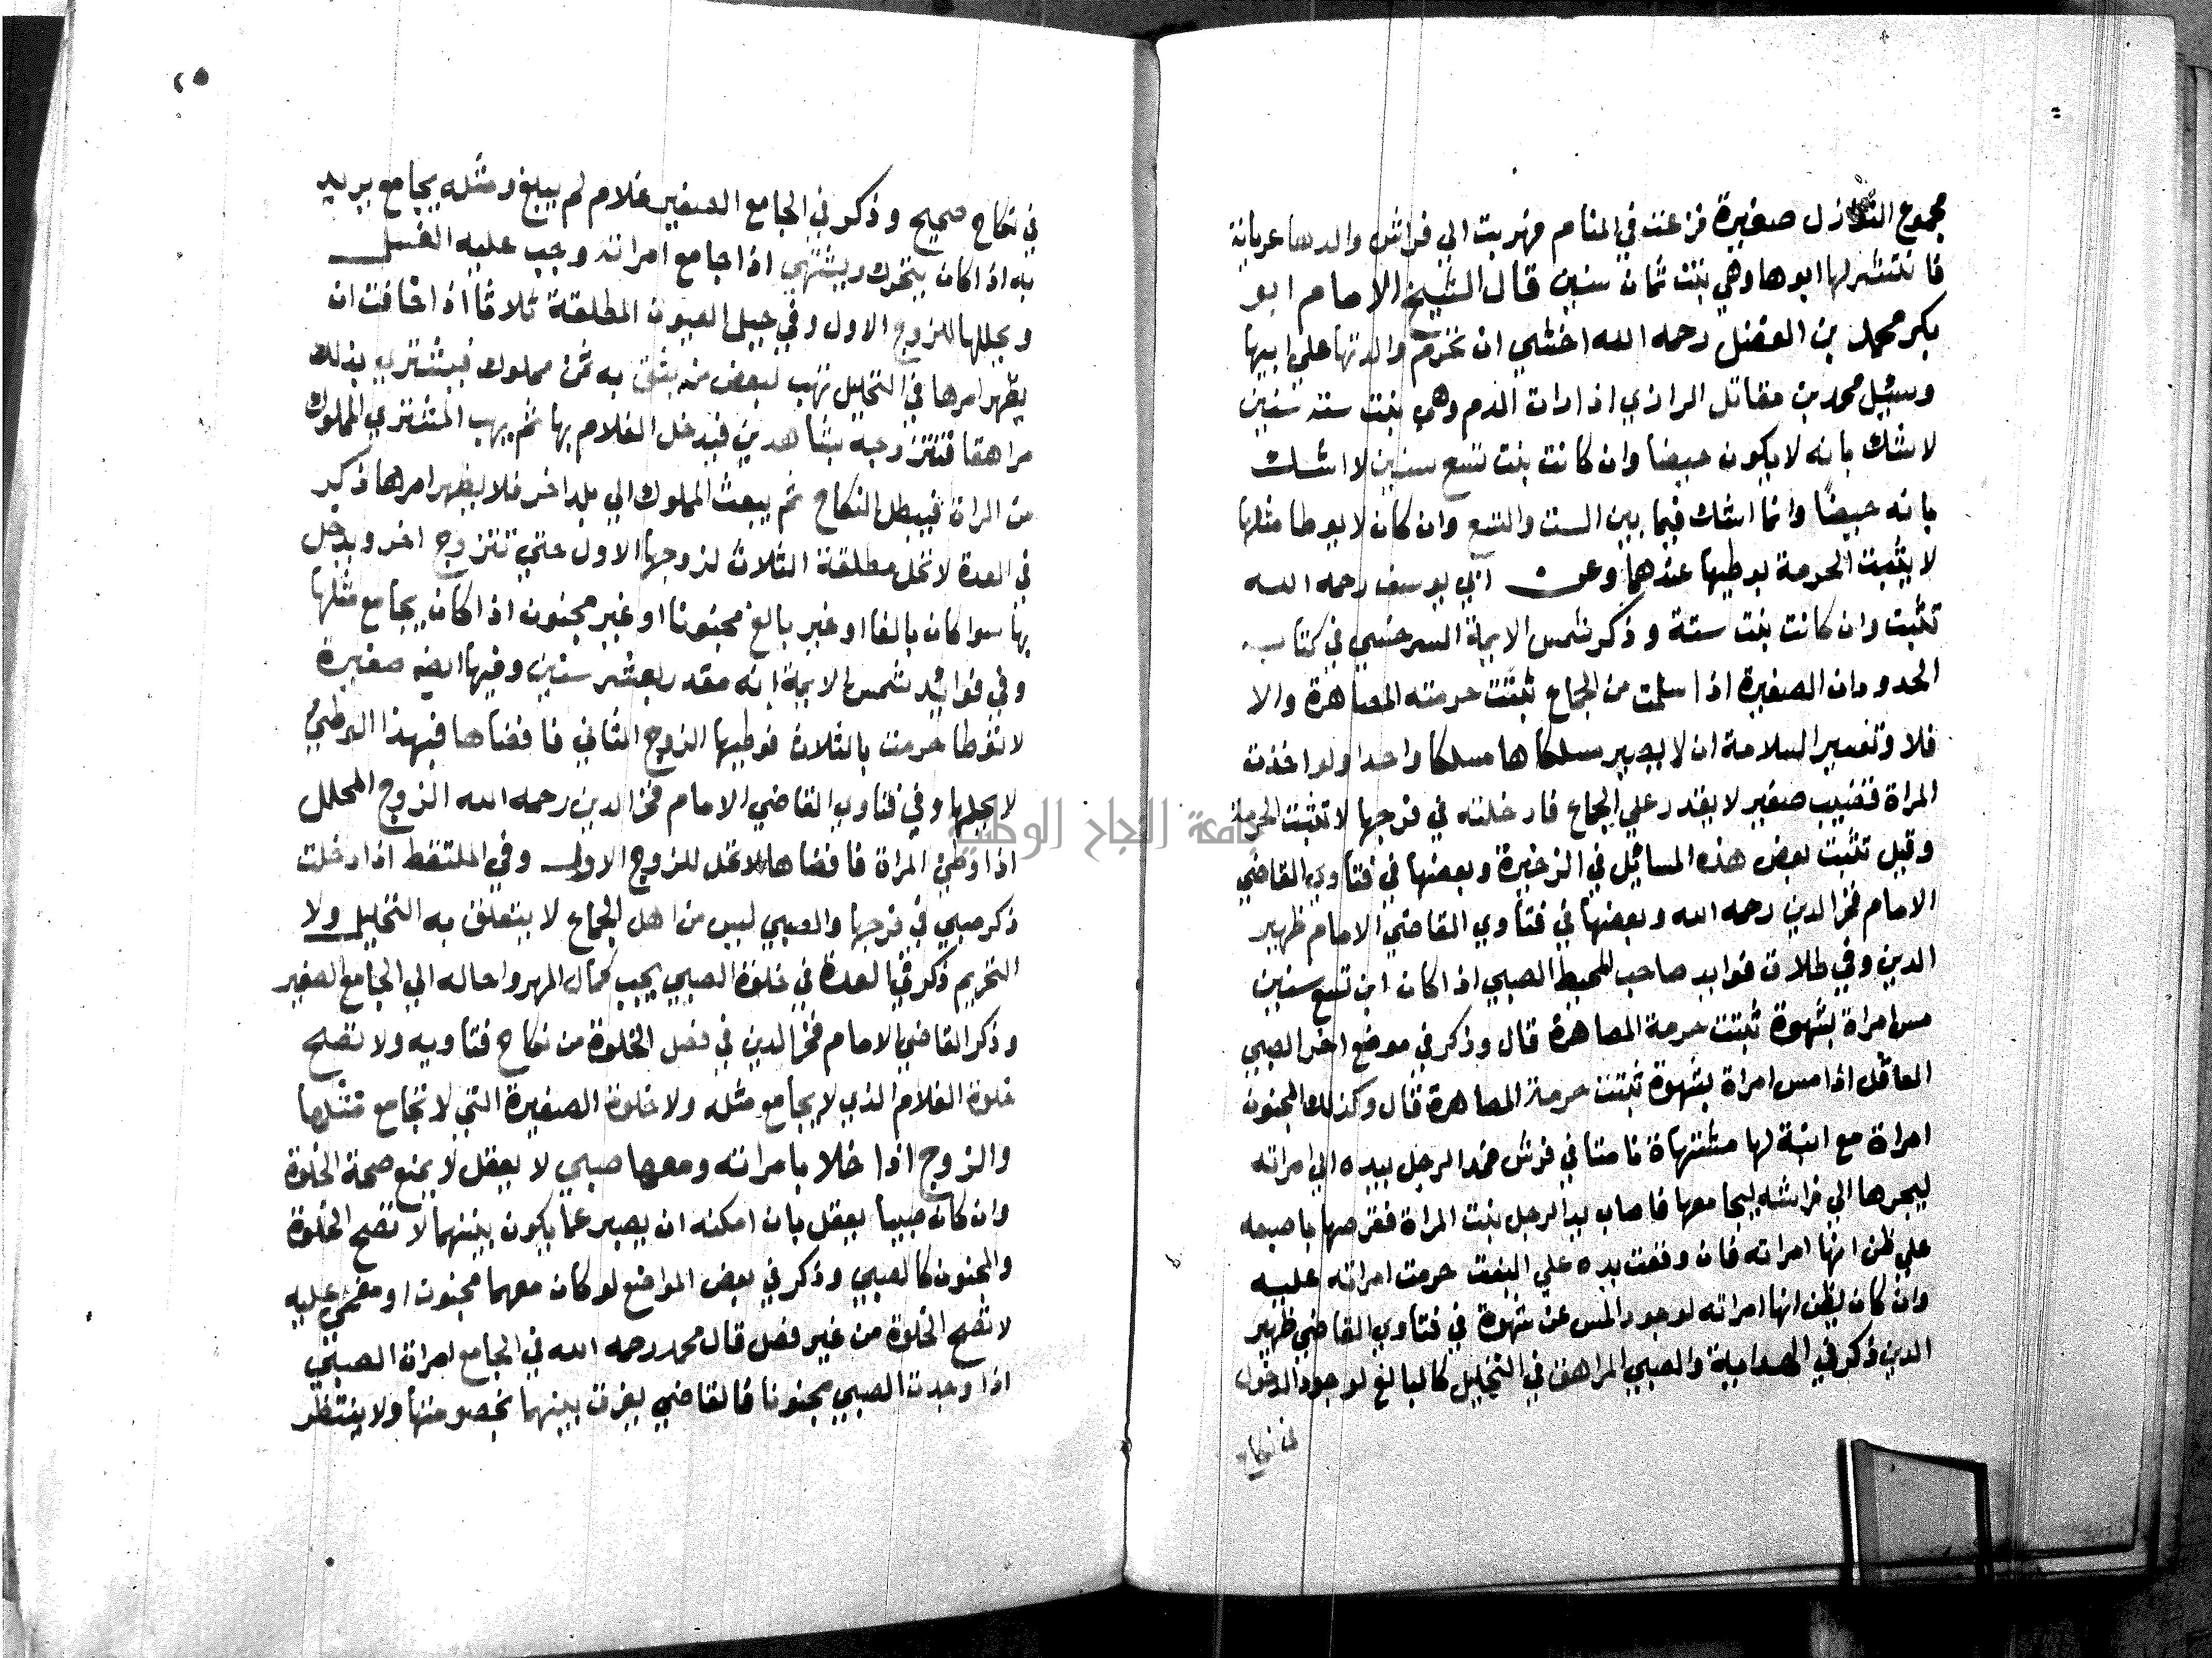 مجموع النوازل صغيرة فزعت في المنام فهربت الي فراش والدها عريانة
فانتشر لها ابوها وهي بنت ثمان سنين قال الشيخ الامام ابو
بكر محمد بن الفضل رحمه الله اخشي ان تحرم والدتها علي ابيها
وسئيل محمد بن مقاتل الرازي اذا رات الدم وهي بنت ستة سنين
لا شك بانه لا يكون حيضا وان كانت بنت تسع سنين لا اشك
بانه حيضا وانما اشك فيما بين الست والتسع وان كان لا يوطا مثلها
لا يثبت الحرمة بوطيها عندهما وعن ابي يوسف رحمه الله
تثبت وان كانت بنت ستة وذكر شمس الايمة السرخسي في كتاب
الحدود ان الصغيرة اذا سلمت من الجماع ثبتت حرمته المصاهرة والا
فلا وتفسير السلامة ان لا يصير مسلكاها مسلكا واحدا ولو اخذت
المراة قضيب صغير لا يقدر علي الجماع فادخلته في فرجها لا تثبت الحرمة
وقيل تثبت بعض هذه المسايل في الذخيرة وبعضها في فتاوي القاضي
الامام فخر الدين رحمه الله وبعضها في فتاوي القاضي الامام ظهير
الدين وفي طلاق فوايد صاحب المحيط الصبي اذا كان ابن تسع سنين
مس امراة بشهوة ثبتت حرمة المصاهرة قال وذكر في موضع اخر الصبي
العاقل اذا مس امراة بشهوة ثبتت حرمة المصاهرة قال وكذلك المجنون
امراة مع ابنة لها مشتهاة نامتا في فرش فمد الرجل بيده الي امراته
ليجرها الي فراشه ليجامعها فاصاب يد الرجل بنت المراة فقرصها باصبعه
علي ظن انها امراته فان وقعت يده علي البنت حرمت امراته عليه
وان كان يظن انها امراته لوجود المس عن شهوة في فتاوي القاضي ظهير
الدين ذكر في الهداية والصبي المراهق في التحليل كالبالغ لوجود الدخول
في نكاح
٢٥
في نكاح صحيح وذكر في الجامع الصغير غلام لم يبلغ ومثله يجامع يريد
به اذا كان يتحرك ويشتهي اذا جامع امراته وجب عليه الغسل
ويحللها للزوج الاول وفي حيل العيون المطلقة ثلاثا اذا خافت ان
يظهر امرها في التحليل تهب لبعض من يثق به ثمن مملوك فيشتري بذلك
مراهقا فتتزوجه بشاهدين فيدخل الغلام بها ثم يهب المشتري المملوك
من المراة فيبطل النكاح ثم يبعث المملوك الي بلد اخر فلا يظهر امرها ذكر
في العدة لا تحل مطلقة الثلاث لزوجها الاول حتي تتزوج اخر ويدخل
بها سوا كان بالغا او غير بالغ مجنونا او غير مجنون اذا كان يجامع مثلها
وفي فوائد شمس الايمة انه مقدر بعشر سنين وفيها ايضا صغيرة
لا توطا حرمت بالثلاث فوطيها الزوج الثاني فافضاها فبهذا الوطئ
لا يحلها وفي فتاوي القاضي الامام فخر الدين رحمه الله الزوج المحلل
اذا وطئ المراة فافضاها لا تحل للزوج الاول وفي الملتقط اذا دخلت
ذكر صبي في فرجها والصبي ليس من اهل الجماع لا يتعلق به التحليل ولا
التحريم ذكر في العدة في خلوة الصبي يجب كمال المهر واحاله الي الجامع الصغير
وذكر القاضي الامام فخر الدين في فصل الخلوة من نكاح فتاويه ولا تصلح
خلوة الغلام الذي لا يجامع مثله ولا خلوة الصغيرة التي لا تجامع مثلها
والزوج اذا خلا بامراته ومعها صبي لا يعقل لا يمنع صحة الخلوة
وان كان صبيا يعقل بان امكنه ان يصبر عما يكون بينهما لا تصح الخلوة
والمجنون كالصبي وذكر في بعض المواضع لو كان معهما مجنون او مغمي عليه
لا تصح الخلوة من غير فصل قال محمد رحمه الله في الجامع امراة الصبي
اذا وجدت الصبي مجنونا فالقاضي يفرق بينهما بخصومتها ولا ينتظر
جامعة النجاح الوطنية